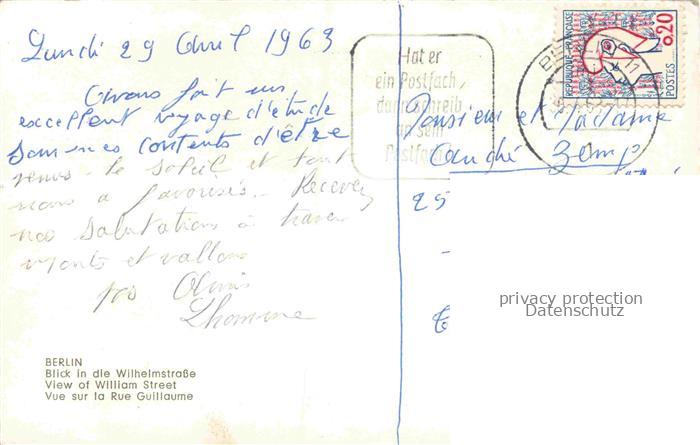 Lundi 29 Avril 1963
Avons fait un
excellent voyage d'étude
sommes contents d'être
venus. le soleil et tout
nous a favorisés. Recevez
nos salutations à travers
monts et vallons
Lhomme
BERLIN
Blick in die Wilhelmstraße
View of William Street
Vue sur la Rue Guillaume
Hat er
ein Postfach,
dann schreib
an sein
Postfach
REPUBLIQUE FRANÇAISE
0,20
POSTES
Monsieur et Madame
25
privacy protection
Datenschutz